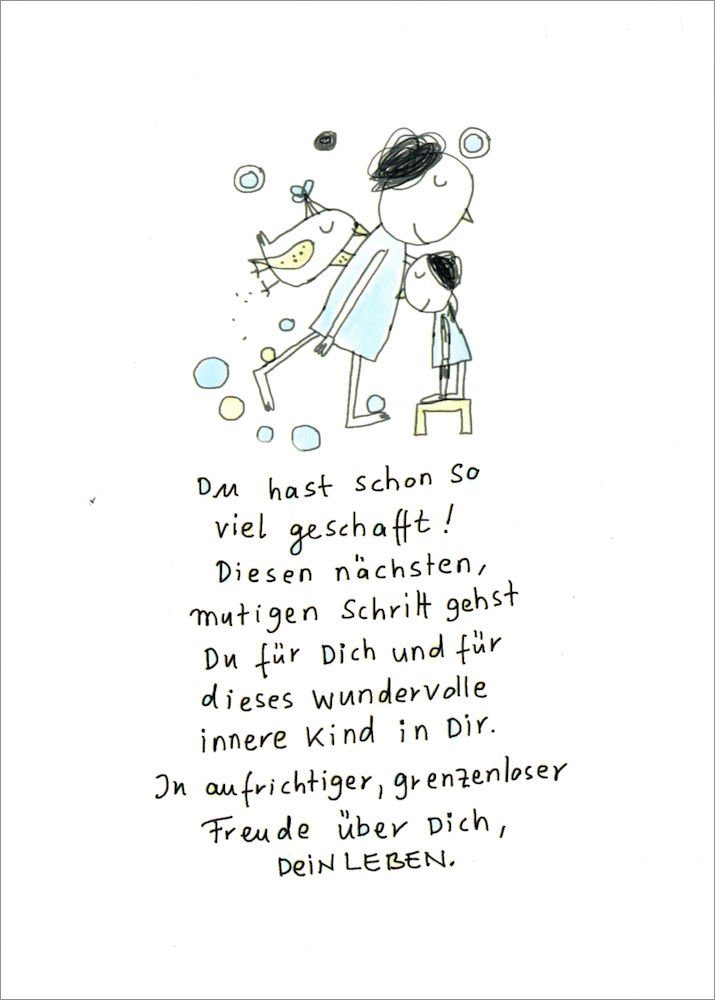 Du hast schon so
viel geschafft!
Diesen nächsten,
mutigen Schritt gehst
Du für Dich und für
dieses wundervolle
innere Kind in Dir.
In aufrichtiger, grenzenloser
Freude über Dich,
DeiN LEBEN.